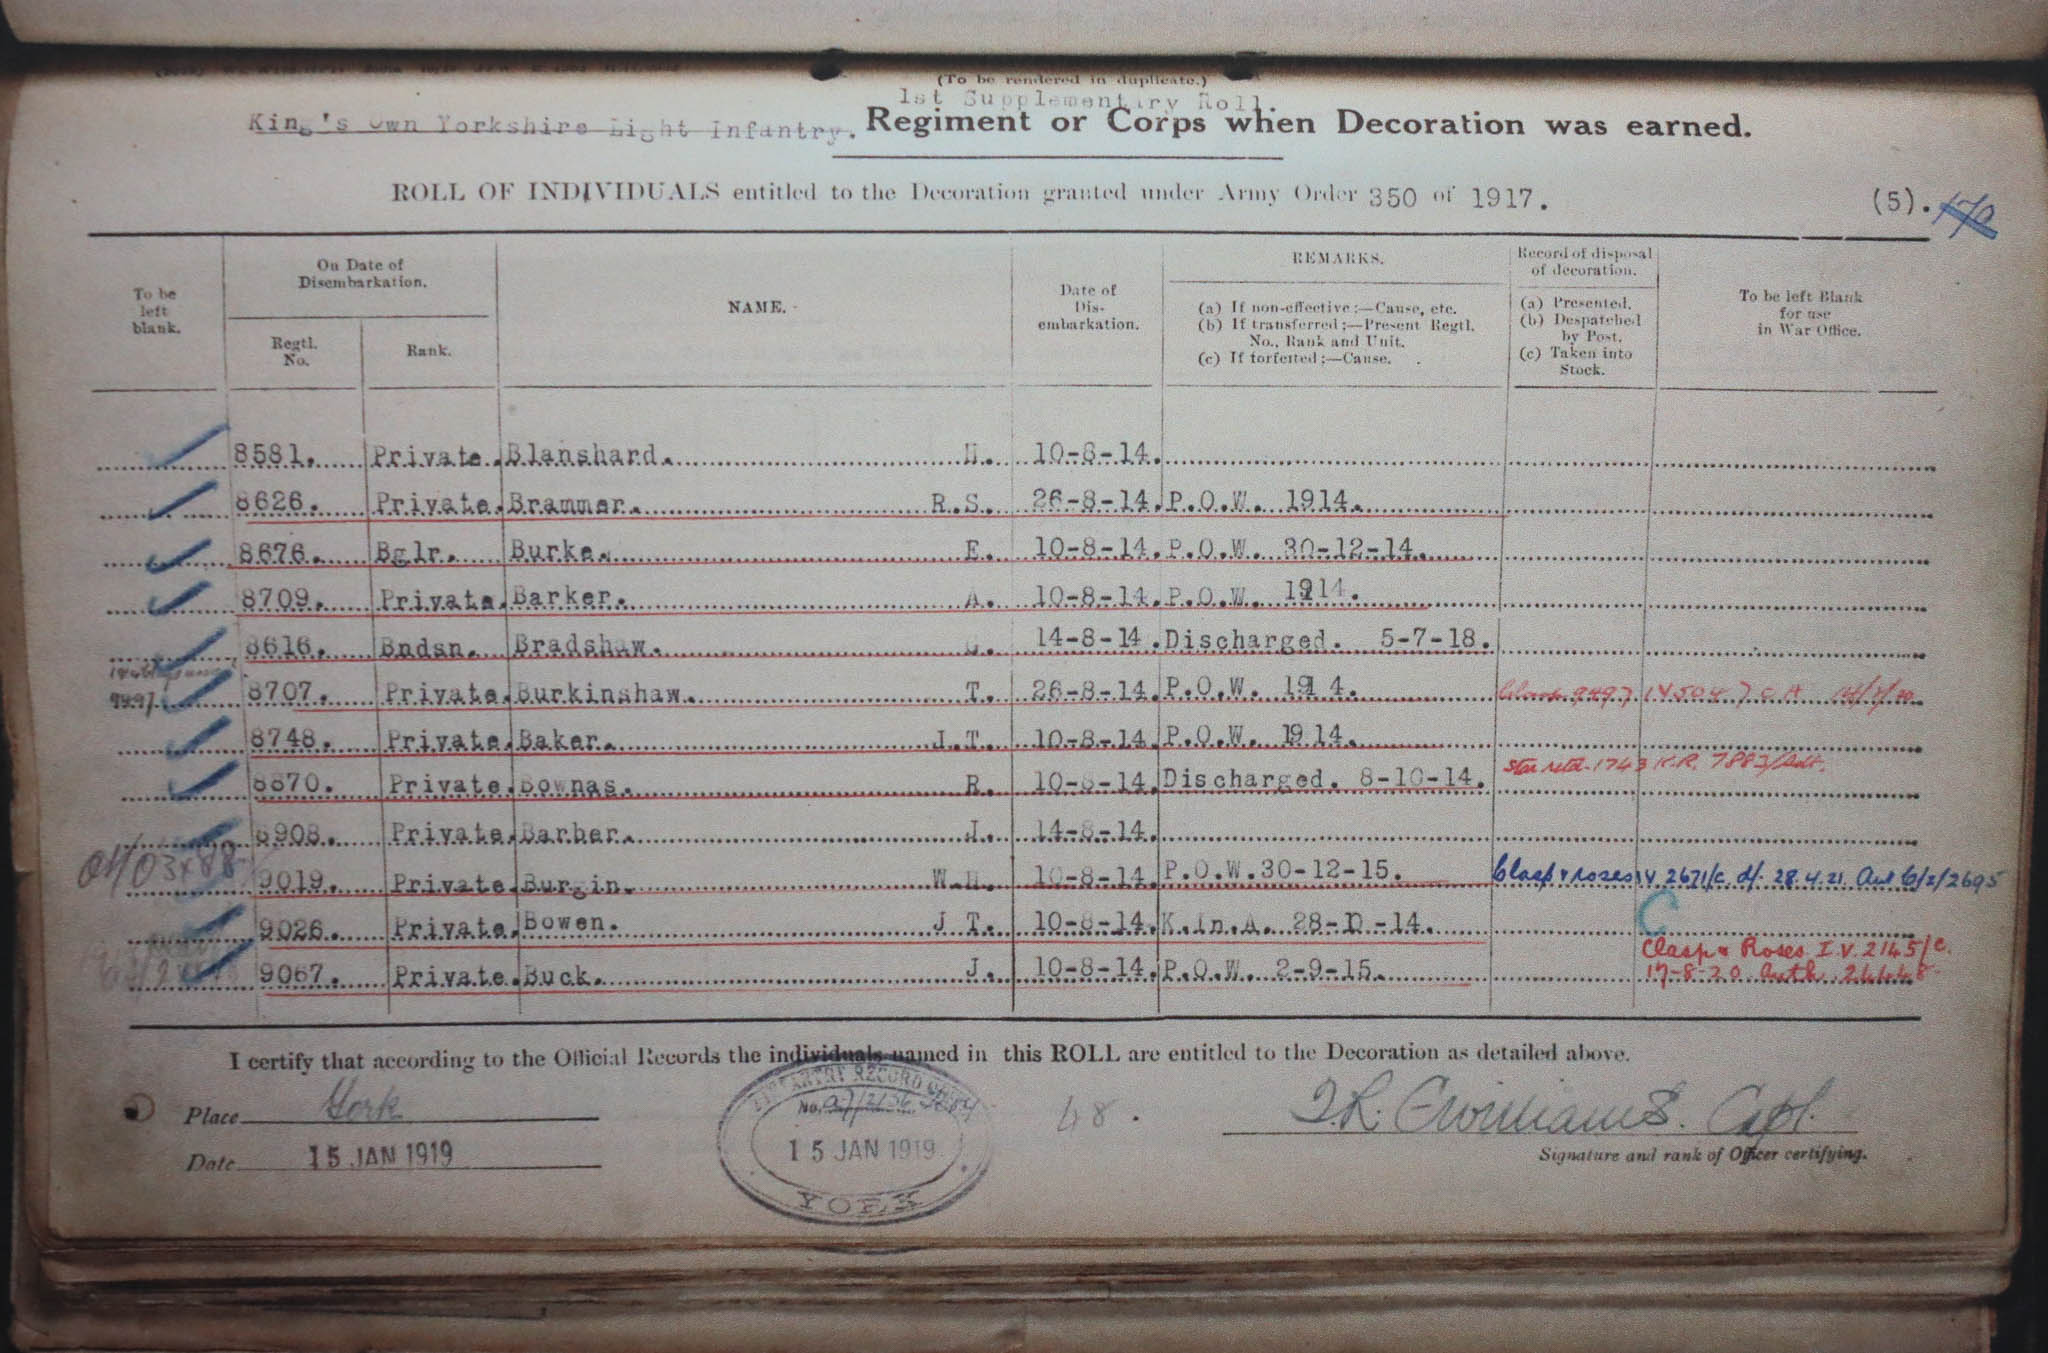 (To be rendered in duplicate.)
1st Supplementary Roll.
King's Own Yorkshire Light Infantry. Regiment or Corps when Decoration was earned.
ROLL OF INDIVIDUALS entitled to the Decoration granted under Army Order 350 of 1917. (5). 170
To be left blank. On Date of Disembarkation. Regtl. No. Rank. NAME. Date of Dis-embarkation. REMARKS. (a) If non-effective:—Cause, etc. (b) If transferred:—Present Regtl. No., Rank and Unit. (c) If forfeited:—Cause. Record of disposal of decoration. (a) Presented. (b) Despatched by Post. (c) Taken into Stock. To be left Blank for use in War Office.
8581. Private. Blanshard. H. 10-8-14.
8626. Private. Brammer. R.S. 26-8-14. P.O.W. 1914.
8676. Bglr. Burke. E. 10-8-14. P.O.W. 30-12-14.
8709. Private. Barker. A. 10-8-14. P.O.W. 1914.
8616. Bndsn. Bradshaw. 14-8-14. Discharged. 5-7-18.
8707. Private. Burkinshaw. T. 26-8-14. P.O.W. 1914. Clasp 9497
8748. Private. Baker. J.T. 10-8-14. P.O.W. 1914.
8870. Private. Bownas. R. 10-8-14. Discharged. 8-10-14. Star retd. 1743 K.R. 7883/Adt.
8908. Private. Barber. J. 14-8-14.
9019. Private. Burgin. W.H. 10-8-14. P.O.W. 30-12-15. Clasp & roses IV 2671/C. d/. 28.4.21. Aut 6/2/2695
9026. Private. Bowen. J T. 10-8-14. K.In.A. 28-D-14. C
9067. Private. Buck. J. 10-8-14. P.O.W. 2-9-15. Clasp & Roses I.V. 2145/C. 17-8-20 Auth 24448
I certify that according to the Official Records the individuals named in this ROLL are entitled to the Decoration as detailed above.
Place York
Date 15 JAN 1919
INFANTRY RECORD OFFICE
No.
15 JAN 1919
YORK
48.
Capt.
Signature and rank of Officer certifying.